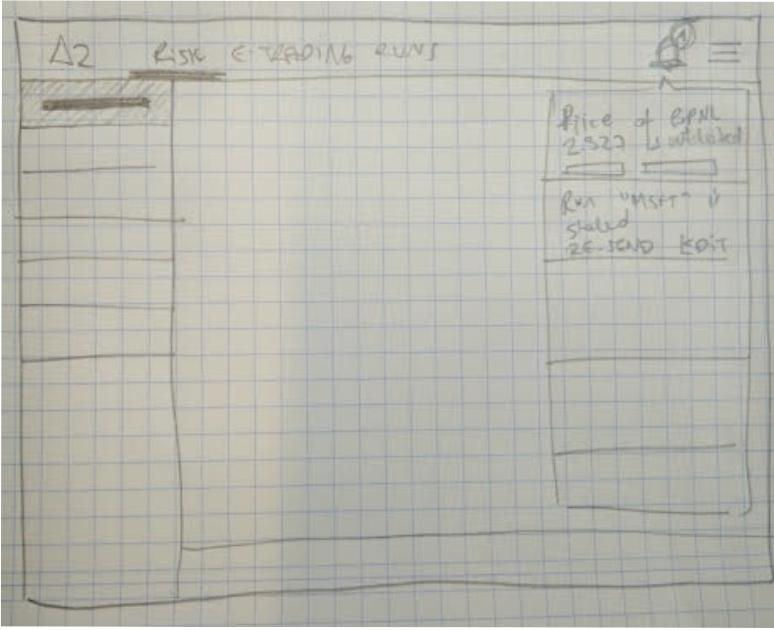 Δ2 RISK E-TRADING RUNS
1
Price of
2.527 is outdated
Run "MSFT" is
staled
RE-SEND EDIT